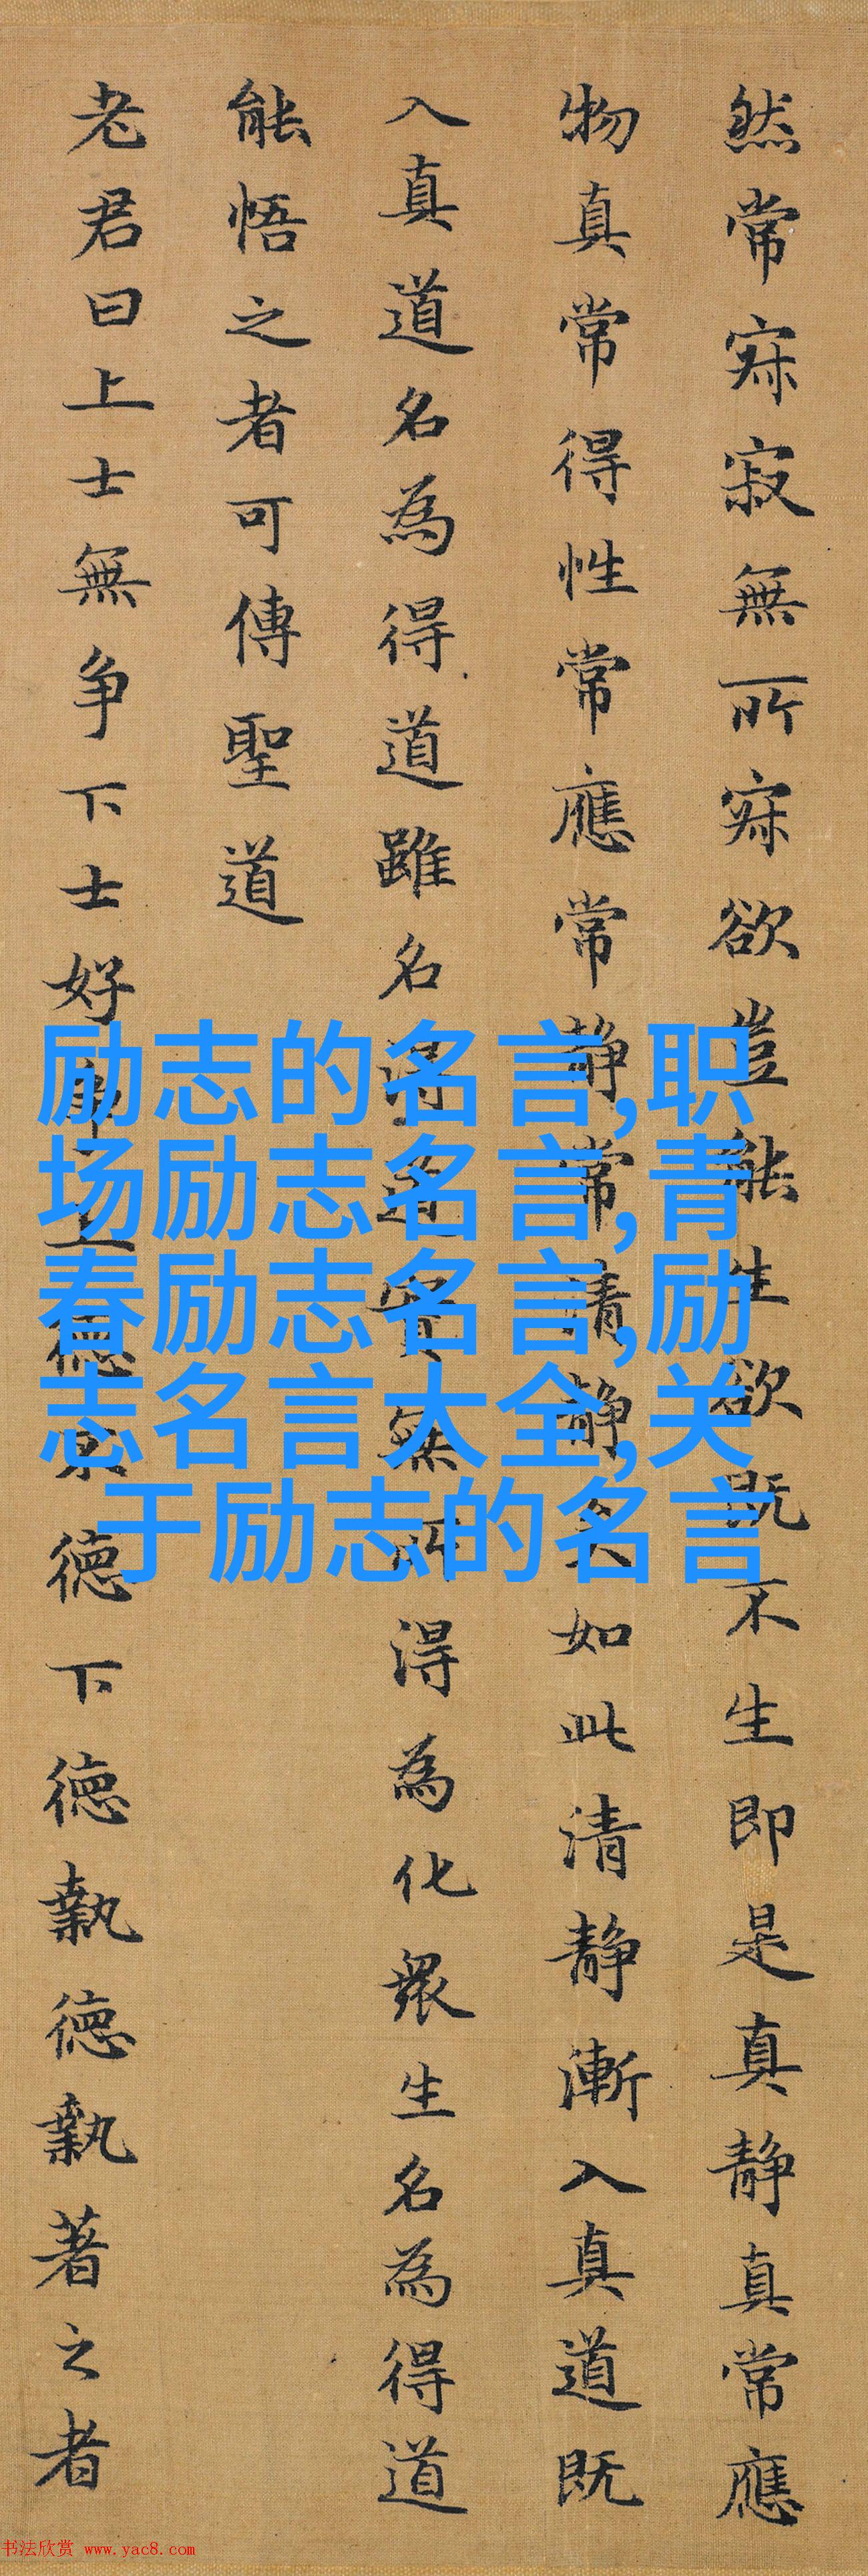 然常寂寂無所寂欲豈能生欲既不生即是真静真常應
物真常得性常應常静常清静矣如此清静漸入真道既
入真道名為得道雖名得道實無所得為化衆生名為得道
能悟之者可傳聖道
老君曰上士無争下士好争上德不德下德執德執著之者
励志的名言,职
场励志名言,青
春励志名言,励
志名言大全,关
于励志的名言
书法欣赏 www.yac8.com